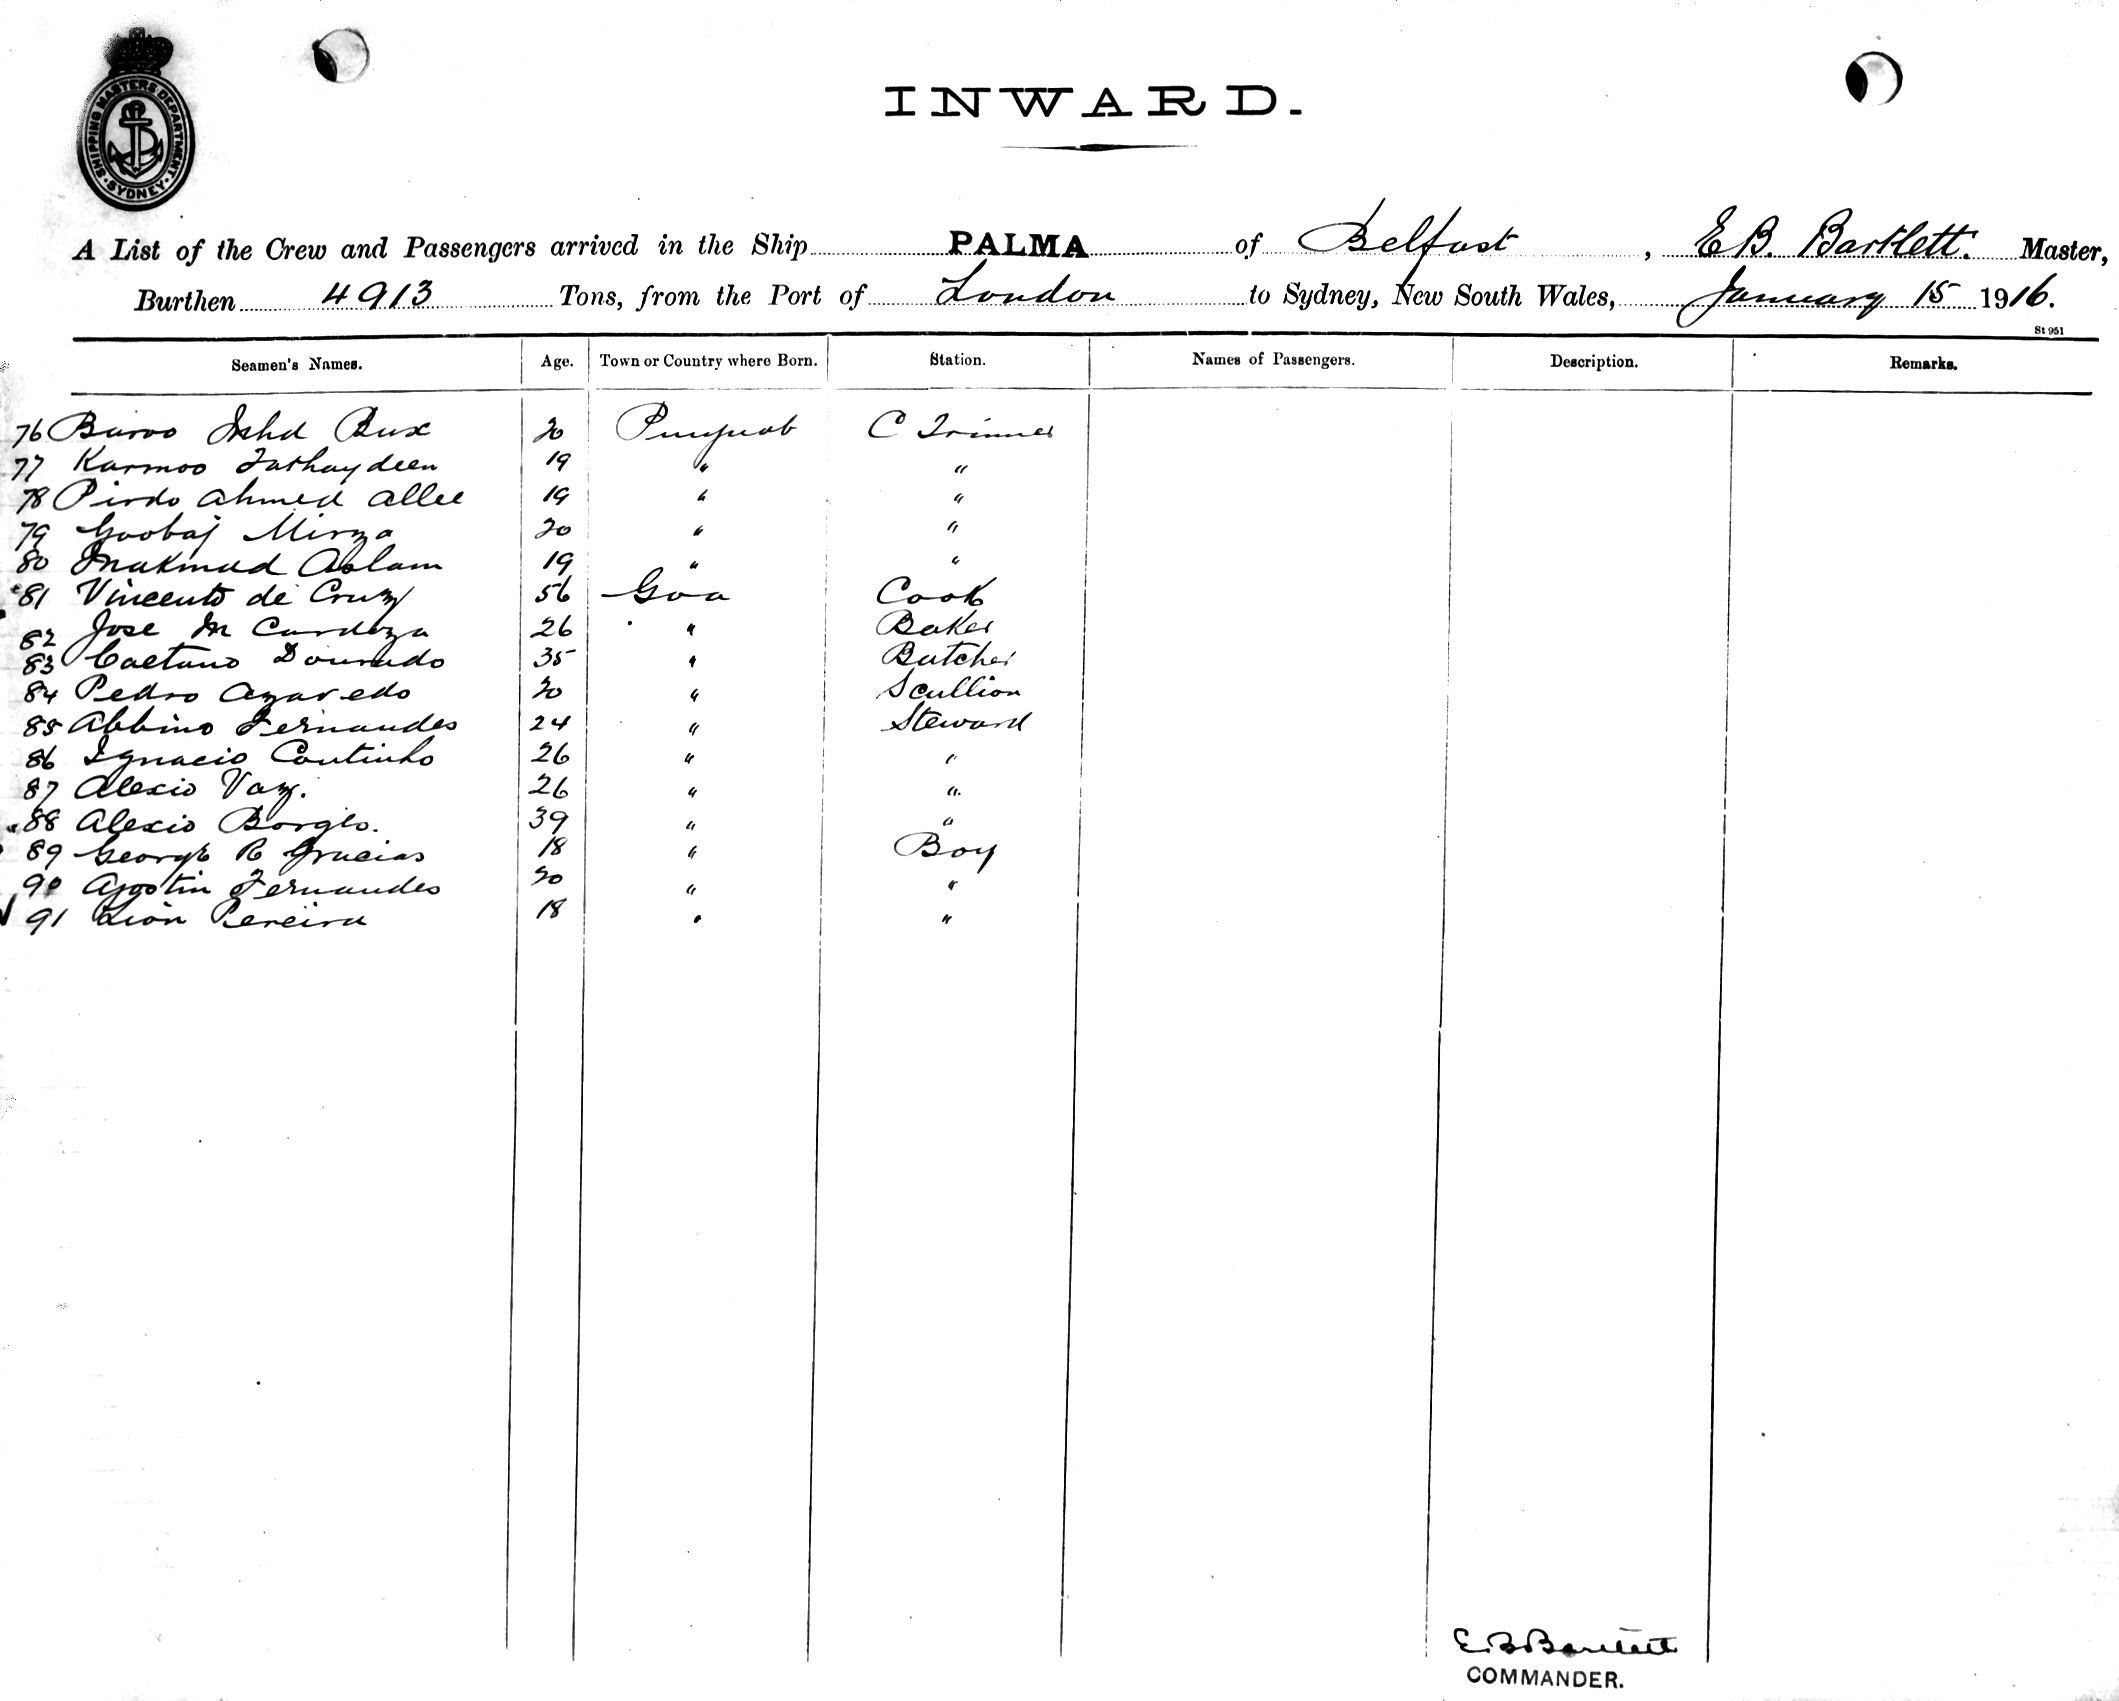 SHIPPING MASTERS DEPARTMENT
SYDNEY
INWARD.
A List of the Crew and Passengers arrived in the Ship PALMA of Belfast, E B. Bartlett. Master,
Burthen 4913 Tons, from the Port of London to Sydney, New South Wales, January 15 1916.
St 951
Seamen's Names. Age. Town or Country where Born. Station. Names of Passengers. Description. Remarks.
76 Bux 20 Punjaub C Trimmer
77 Karmoo 19 " "
78 Pirdo Ahmed Allee 19 " "
79 Mirza 20 " "
80 Aslam 19 " "
81 Vincento de Cruz 56 Goa Cook
82 Jose M Cardoza 26 " Baker
83 Caetano Dourado 35 " Butcher
84 Pedro Azavedo 20 " Scullion
85 Albino Fernandes 24 " Steward
86 Ignacio Coutinho 26 " "
87 Alexio Vaz. 26 " "
88 Alexio Borges. 39 " "
89 George R Gracias 18 " Boy
90 Agostin Fernandes 20 " "
91 Pereira 18 " "
E. B Bartlett
COMMANDER.